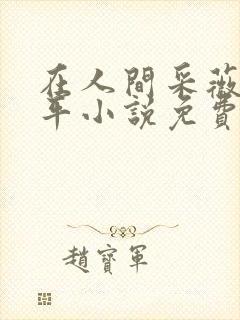 在人間采薇
年小說免費
趙寶軍